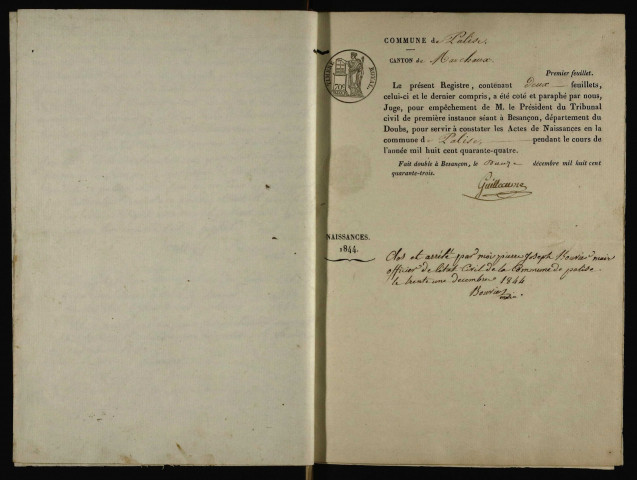 COMMUNE de Palise,
CANTON de Marchaux.
TIMBRE ROYAL
Premier feuillet.
Le présent Registre, contenant Deux feuillets,
celui-ci et le dernier compris, a été coté et paraphé par nous,
Juge, pour empêchement de M. le Président du Tribunal
civil de première instance séant à Besançon, département du
Doubs, pour servir à constater les Actes de Naissances en la
commune de Palise, pendant le cours de
l'année mil huit cent quarante-quatre.
Fait double à Besançon, le décembre mil huit cent
quarante-trois.
Guillaume
NAISSANCES.
1844.
Clos et arrêté par moi pierre joseph Bouvier maire
officier de l'état Civil de la Commune de palise
le trente une decembre 1844
Bouvier